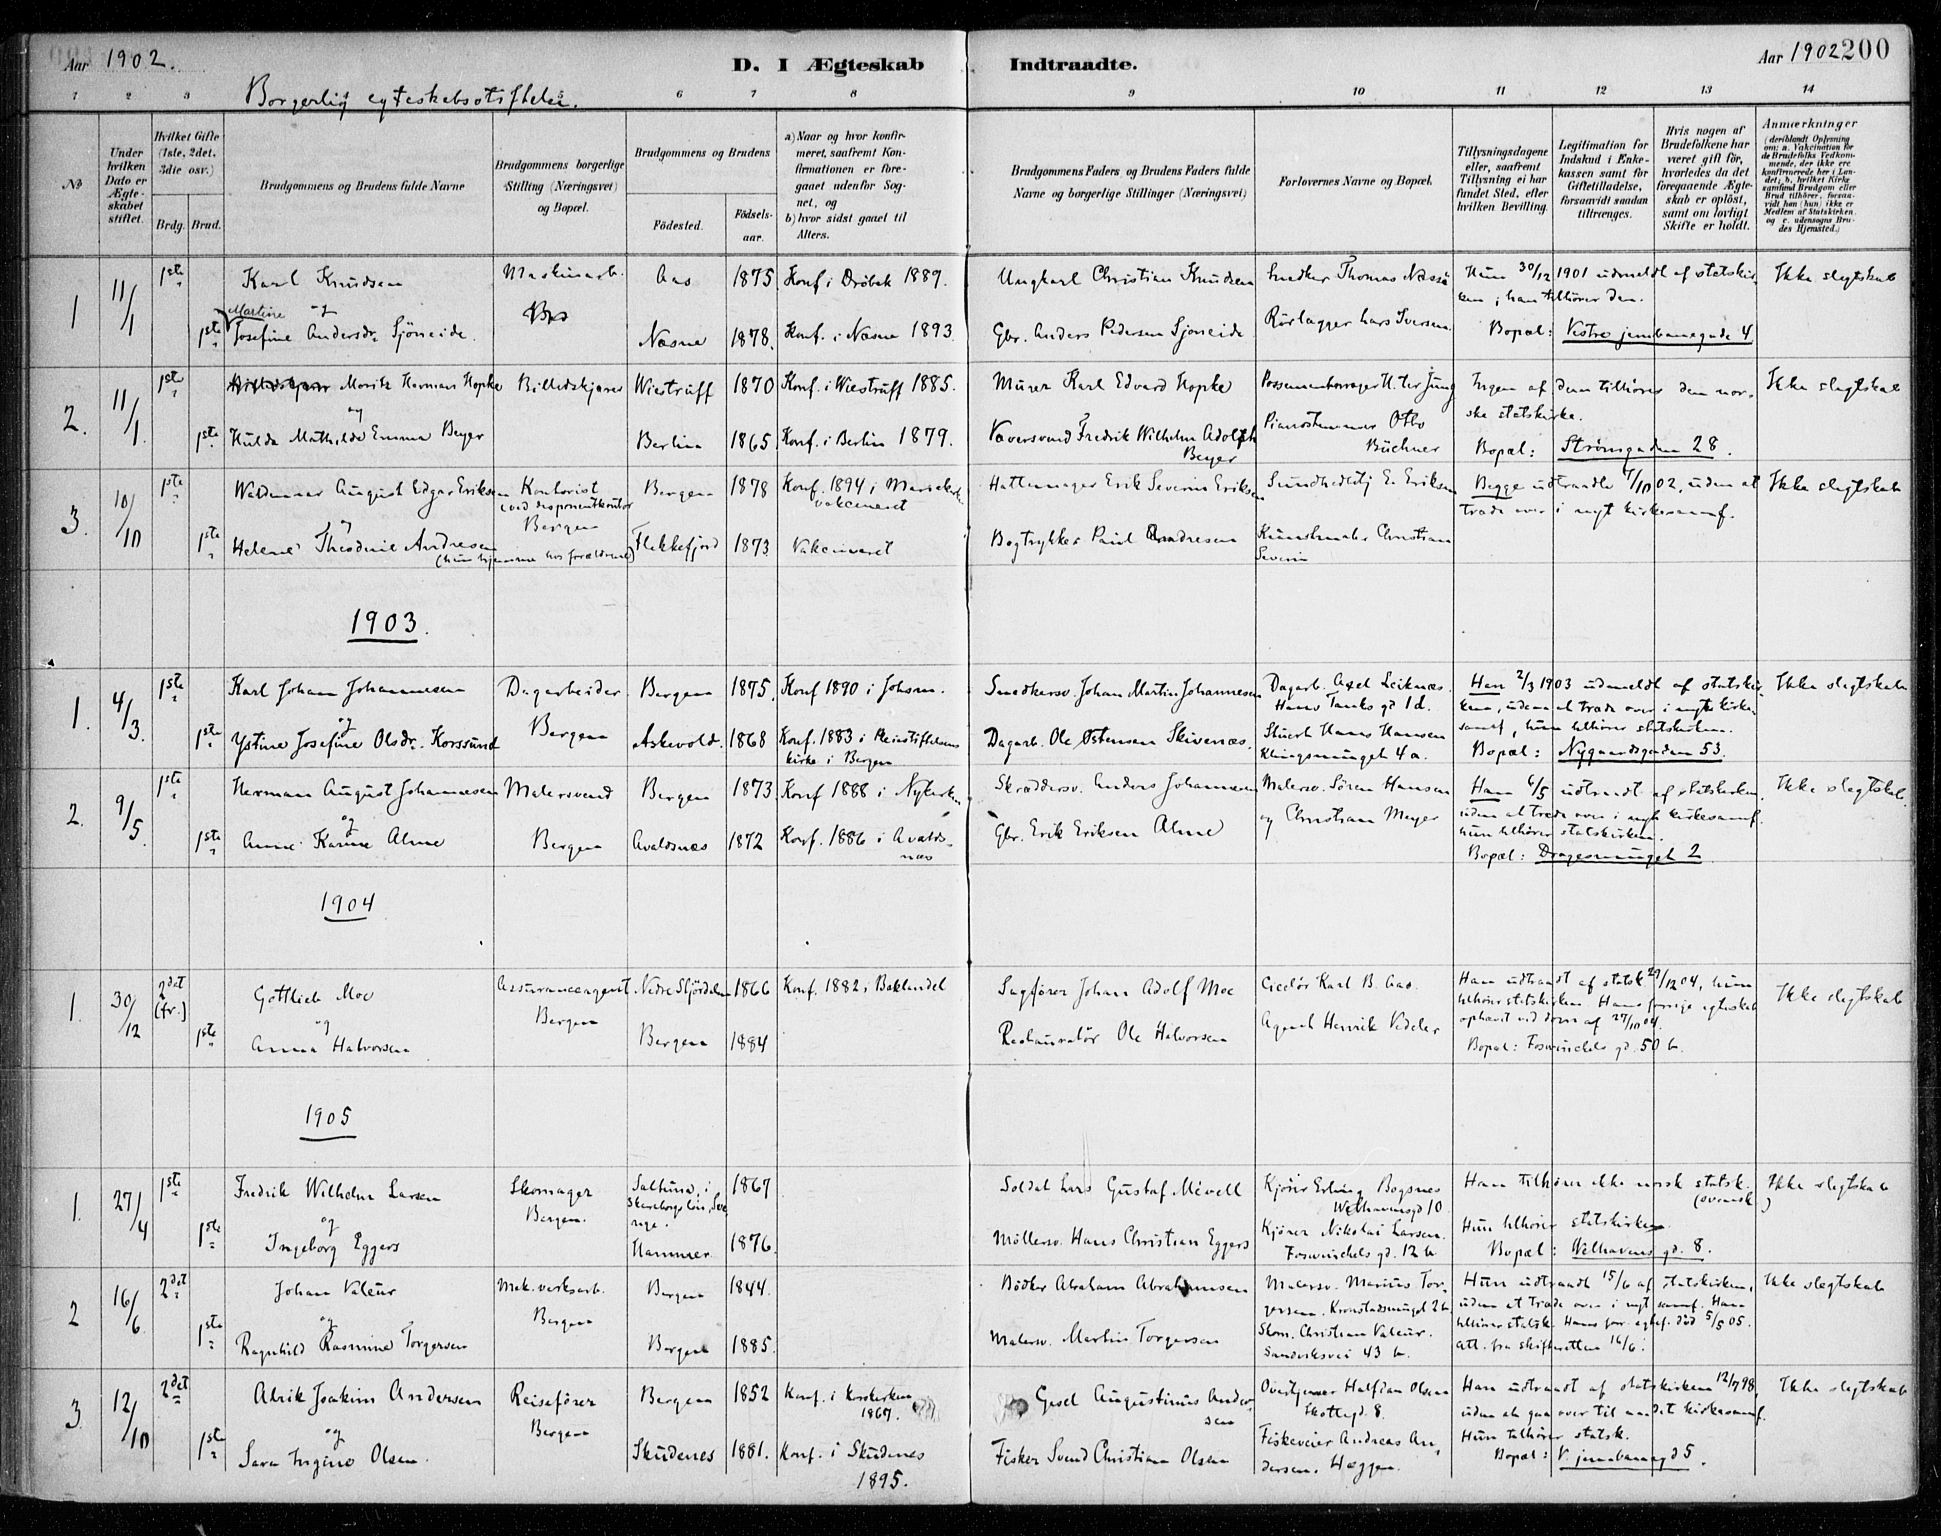 Aar 1902.
D. I Ægteskab Indtraadte.
Aar 1902 200
Borgerlig egteskabsstiftelse.
1 2 3 5 6 7 8 9 10 11 12 13 14
No
Under hvilken Dato er Ægteskabet stiftet.
Hvilket Gifte (1ste, 2det, 3die osv.)
Brdg. Brud.
Brudgommens og Brudens fulde Navne
Brudgommens borgerlige Stilling (Næringsvei) og Bopæl.
Brudgommens og Brudens
Födested. Födselsaar.
a) Naar og hvor konfirmeret, saafremt Konfirmationen er foregaaet udenfor Sognet, og
b) hvor sidst gaaet til Alters.
Brudgommens Faders, og Brudens Faders fulde Navne og borgerlige Stillinger (Næringsvei)
Forlovernes Navne og Bopæl.
Tillysningsdagene eller, saafremt Tillysning ei har fundet Sted, efter hvilken Bevilling.
Legitimation for Indskud i Enkekassen samt for Giftetilladelse, forsaavidt saadan tiltrænges.
Hvis nogen af Brudefolkene har været gift för, hvorledes da det foregaaende Ægteskab er oplöst, samt om lovligt Skifte er holdt.
Anmærkninger
(deriblandt Oplysning om: a. Vakcination for de Brudefolks Vedkommende, der ikke ere konfirmerede her i Landet; b. hvilket Kirkesamfund Brudgom eller Brud tilhörer, forsaavidt han (hun) ikke er Medlem af Statskirken, og c. udensogns Brudes Hjemsted.)
1 11/1 1ste Karl Knudsen Maskinarb. Aas 1875 Konf. i Drøbak 1889. Ungkarl Christian Knudsen Snedker Thomas Hun 30/12 1901 udmeldt af statskirken; han tilhører den. Ikke slegtskab
og
1ste Martine Josefine Andersdr. Sjöneide Næsne 1878. Konf. i Næsne 1893. Gbr. Anders Pedersen Sjöneide Rörlægger Lars Iversen. Bopæl: Vestre jernbanegade 4
2. 11/1. 1ste Moritz Herman Hopke Billedskjærer Wiestruff 1870 Konf. i Wiestruff 1885. Murer Karl Edvard Hopke Ingen af dem tilhører den norske statskirke. Ikke slegtskab
og
1ste Hulda Mathilde Emma Beyer Berlin 1865 Konf. i Berlin 1879. Væversvend Fredrik Wilhelm Adolph Beyer Pianostemmer Otto Büchner Bopæl: Strømgaden 28.
3. 10/10 1ste Waldemar August Edgar Eriksen Kontorist (ved disponentkontor Bergen Bergen 1878 Konf. 1894 i Mariekirken vakcineret Hattemager Erik Severin Eriksen Sundhedsbtj. E. Eriksen Begge udtraadte 4/10 02, uden at træde over i nyt kirkesamf. Ikke slegtskab
og
1ste Helene Theodine Andresen (hun hjemme hos forældrene) Flekkefjord 1873 Vakcineret Bogtrykker Paul Andresen Kunstmaler Christian Severin
1903.
1. 4/3. 1ste Karl Johan Johannesen Dagarbeider Bergen 1875. Konf 1890 i Johsn. Snedkersv. Johan Martin Johannesen Dagarb. Axel Leiknæs. Hans Tanks gd 1d. Han 2/3 1903 udmeldt af statskirken, uden at træde over i nyt kirkesamf, hun tilhører statskirken. Ikke slegtskab
og
1ste Ystine Josefine Olsdr. Korssund Bergen Askevold. 1868 Konf. 1883 i Pleiestiftelsens kirke i Bergen Dagarb. Ole Østensen Skivenæs. Stuert Hans Hansen Klingsmuget 4a. Bopæl: Nygaardsgaden 53.
2. 9/5. 1ste Herman August Johannesen Malersvend Bergen 1873 Konf 1888 i Nykirken Skræddersv. Anders Johannesen Malersv. Sören Hansen Han 6/5 udtraadt af statskirken, uden at træde over i nyt kirkesamf. hun tilhører statskirken. Ikke slegtskab.
og
1ste Anne Karine Alme Bergen Avaldsnæs 1872 Konf. 1886 i Avaldsnæs Gbr. Erik Eriksen Alme og Christian Meyer Bopæl: Dragesmuget 2
1904
1. 30/12 2det (fr.) Gottlieb Moe Assuranceagent Nedre Stjördalen 1866 Konf. 1882 i Baklandet Sagfører Johan Adolf Moe Ciselör Karl B. Aas. Han udtraadt af statsk 29/12 04, hun tilhører statskirken. Hans forrige egteskab ophævet ved dom af 27/10 04. Ikke slegtskab
og
1ste Anna Halvorsen Bergen Bergen 1884 Restauratør Ole Halvorsen Agent Henrik Vedeler Bopæl: Foswinckels gd. 50 b.
1905
1. 27/4 1ste Fredrik Wilhelm Larsen Skomager Bergen. Saltuna, i Skaraborgs län, Sverige. 1867 Soldat Lars Gustaf Mevell Kjører Erling Bogsnes Welhavensgd 10 Han tilhører ikke norsk statsk. (svensk) Ikke slegtskab
og
1ste Ingeborg Eggers Hammer 1876. Möllersv. Hans Christian Eggers Kjører Nikolai Larsen. Foswinckels gd. 12 b. Hun tilhører statskirken. Bopæl: Welhavens gd. 8.
2 16/6 2det Johan Valeur Mek. verksarb. Bergen 1844. Bødker Abraham Abrahamsen Malersv. Marius Torgersen. Kronstadsmuget 2b. Hun udtraadt 15/6 af statskirken, uden at træde over i nyt samf. Han tilhører statsk. Hans forr. egtef. död 5/5 05. Ikke slegtskab
og
1ste Ragnhild Rasmine Torgersen Bergen Bergen 1885. Malersv. Martin Torgersen Skom. Christian Valeur. Sandviksvei 43 b. Att. fra skifteretten 16/6.
3. 12/10 2det Alrik Joakim Andersen Reisefører Bergen 1852 Konf. i Korskirken 1867. Gjesel Augustinus Andersen Overtjener Halfdan Olsen Skottegd. 8. Han udtraadt af statskirken 12/7 98, uden at gaa over til andet kirkesamf. Ikke slegtskab
og
1ste Sara Ingine Olsen. Bergen Skudenes 1881. Konf. i Skudenes 1895. Fisker Svend Christian Olsen Fiskeveier Andreas Andersen. Hæggen. Hun tilhører statsk. Bopæl: V. jernbanegd 5.